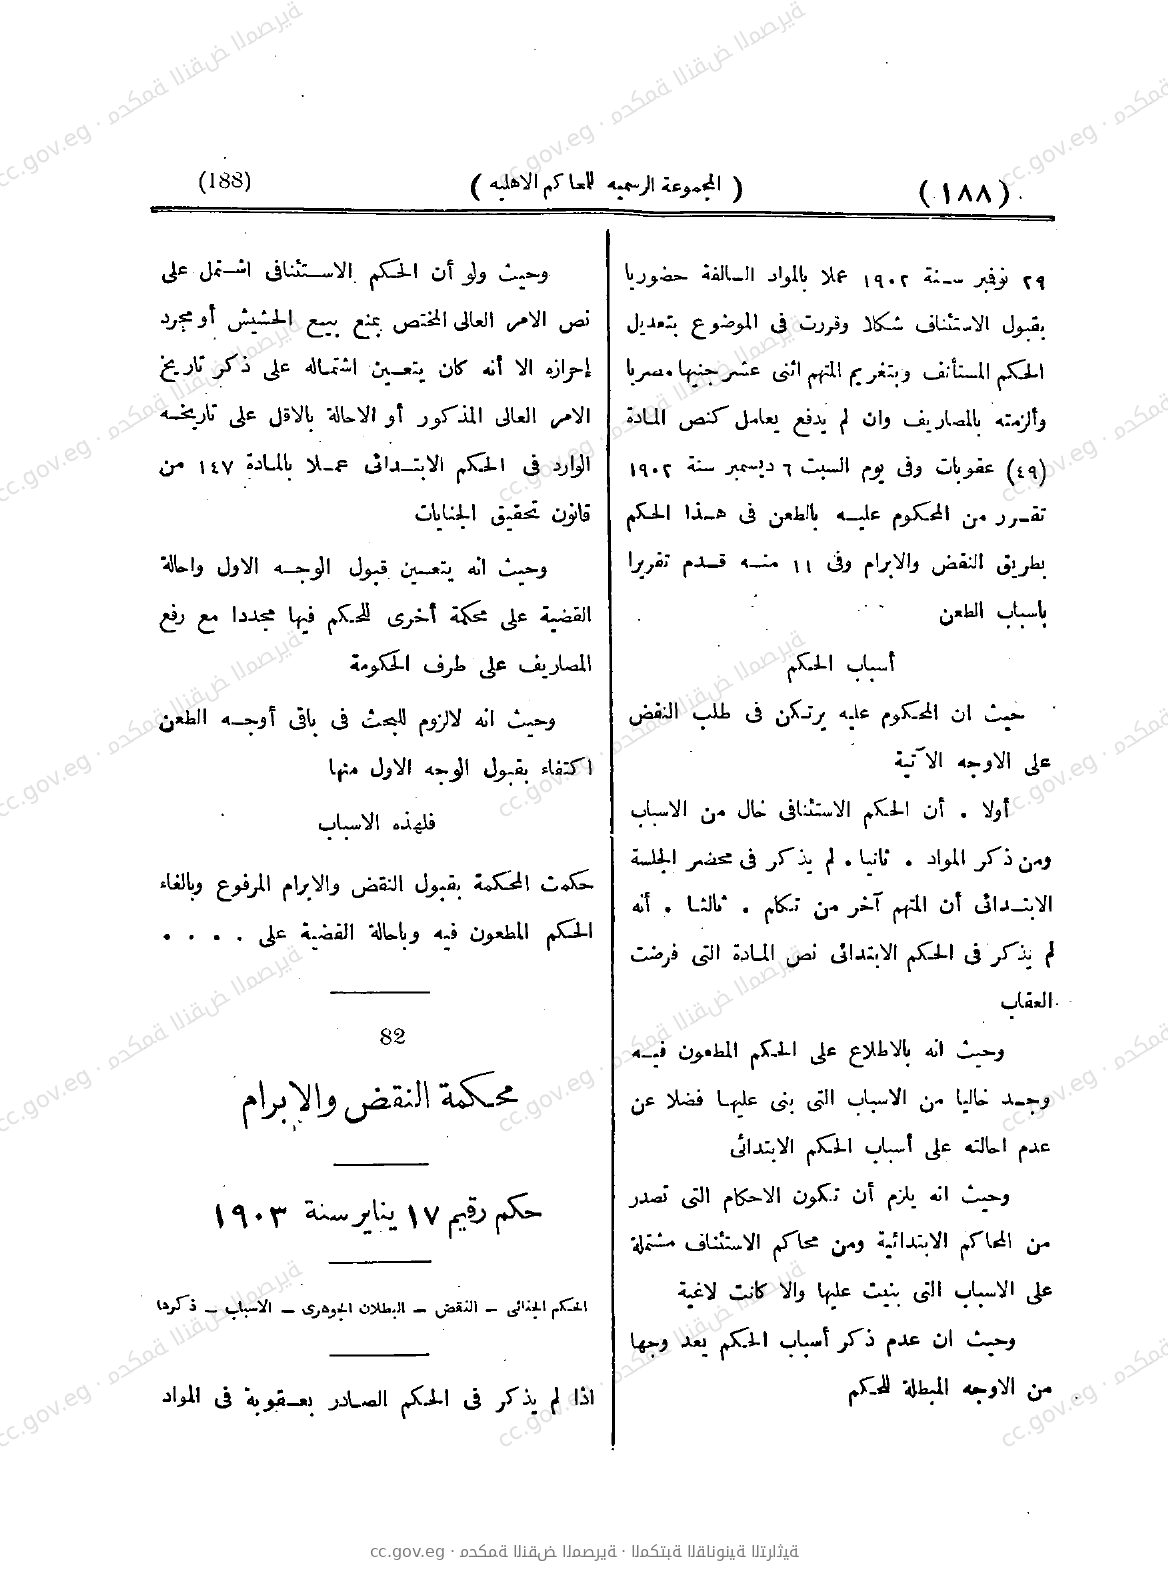 (١٨٨) ( المجموعة الرسميه للمحاكم الاهليه ) (188)
٢٩ نوفمبر سنة ١٩٠٢ عملا بالمواد السالفة حضوريا
بقبول الاستئناف شكلا وقررت فى الموضوع بتعديل
الحكم المستأنف وبتغريم المتهم اثنى عشر جنيها مصريا
وألزمته بالمصاريف وان لم يدفع يعامل كنص المادة
(٤٩) عقوبات وفى يوم السبت ٦ ديسمبر سنة ١٩٠٢
تقرر من المحكوم عليه بالطعن فى هذا الحكم
بطريق النقض والابرام وفى ١١ منه قدم تقريرا
باسباب الطعن
أسباب الحكم
حيث ان المحكوم عليه يرتكن فى طلب النقض
على الاوجه الآتية
أولا . أن الحكم الاستئنافى خال من الاسباب
ومن ذكر المواد . ثانيا . لم يذكر فى محضر الجلسة
الابتدائى أن المتهم آخر من تكلم . ثالثا . أنه
لم يذكر فى الحكم الابتدائى نص المادة التى فرضت
العقاب
وحيث انه بالاطلاع على الحكم المطعون فيه
وجد خاليا من الاسباب التى بنى عليها فضلا عن
عدم احالته على أسباب الحكم الابتدائى
وحيث انه يلزم أن تكون الاحكام التى تصدر
من المحاكم الابتدائية ومن محاكم الاستئناف مشتملة
على الاسباب التى بنيت عليها والا كانت لاغية
وحيث ان عدم ذكر أسباب الحكم يعد وجها
من الاوجه المبطلة للحكم
وحيث ولو أن الحكم الاستئنافى اشتمل على
نص الامر العالى المختص بمنع بيع الحشيش أو مجرد
إحرازه الا أنه كان يتعين اشتماله على ذكر تاريخ
الامر العالى المذكور أو الاحالة بالاقل على تاريخه
الوارد فى الحكم الابتدائى عملا بالمادة ١٤٧ من
قانون تحقيق الجنايات
وحيث انه يتعين قبول الوجه الاول واحالة
القضية على محكمة أخرى للحكم فيها مجددا مع رفع
المصاريف على طرف الحكومة
وحيث انه لالزوم للبحث فى باقى أوجه الطعن
اكتفاء بقبول الوجه الاول منها
فلهذه الاسباب
حكمت المحكمة بقبول النقض والابرام المرفوع وبالغاء
الحكم المطعون فيه وباحالة القضية على . . . .
82
محكمة النقض والإبرام
حكم رقيم ١٧ يناير سنة ١٩٠٣
الحكم الجنائى – النقض – البطلان الجوهرى – الاسباب – ذكرها
اذا لم يذكر فى الحكم الصادر بعقوبة فى المواد
cc.gov.eg · محكمة النقض المصرية · المكتبة القانونية التراثية